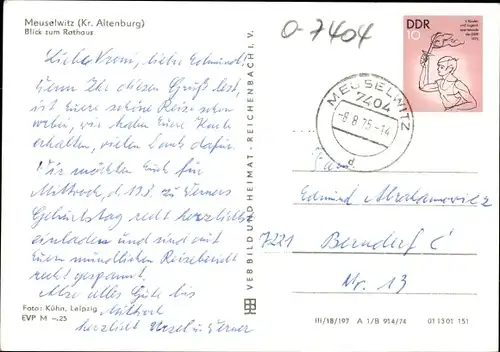 Meuselwitz (Kr. Altenburg)
Blick zum Rathaus
Liebe Vroni, lieber Edmund!
Wenn Ihr diesen Gruß lest,
ist Eure schöne Reise schon
vorbei, wir haben Eure Karte
erhalten, vielen Dank dafür.
Wir möchten Euch für
Mittwoch, d. 13.8. zu Werners
Geburtstag recht herzlichst
einladen und sind auf
Euren mündlichen Reisebericht
recht gespannt.
Also alles Gute bis
Mittwoch
herzlichst Ursel u. Werner
Foto: Kühn, Leipzig
EVP M -.25
VEB BILD UND HEIMAT · REICHENBACH I. V.
O-7404
MEUSELWITZ
7404
-8.8.75-14
d
DDR
10
Fam.
Edmund Abrahamowicz
7221 Berndorf
Nr. 13
III/18/197 A 1/B 914/74 01 13 01 151